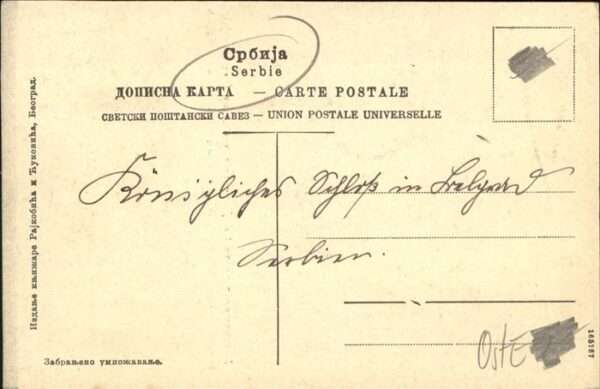 Србија
Serbie
ДОПИСНА КАРТА — CARTE POSTALE
СВЕТСКИ ПОШТАНСКИ САВЕЗ — UNION POSTALE UNIVERSELLE
Königliches Schloß in Belgrad
Serbien.
Издање књижаре Рајковића и Ћуковића, Београд.
Забрањено умножавање.
165187